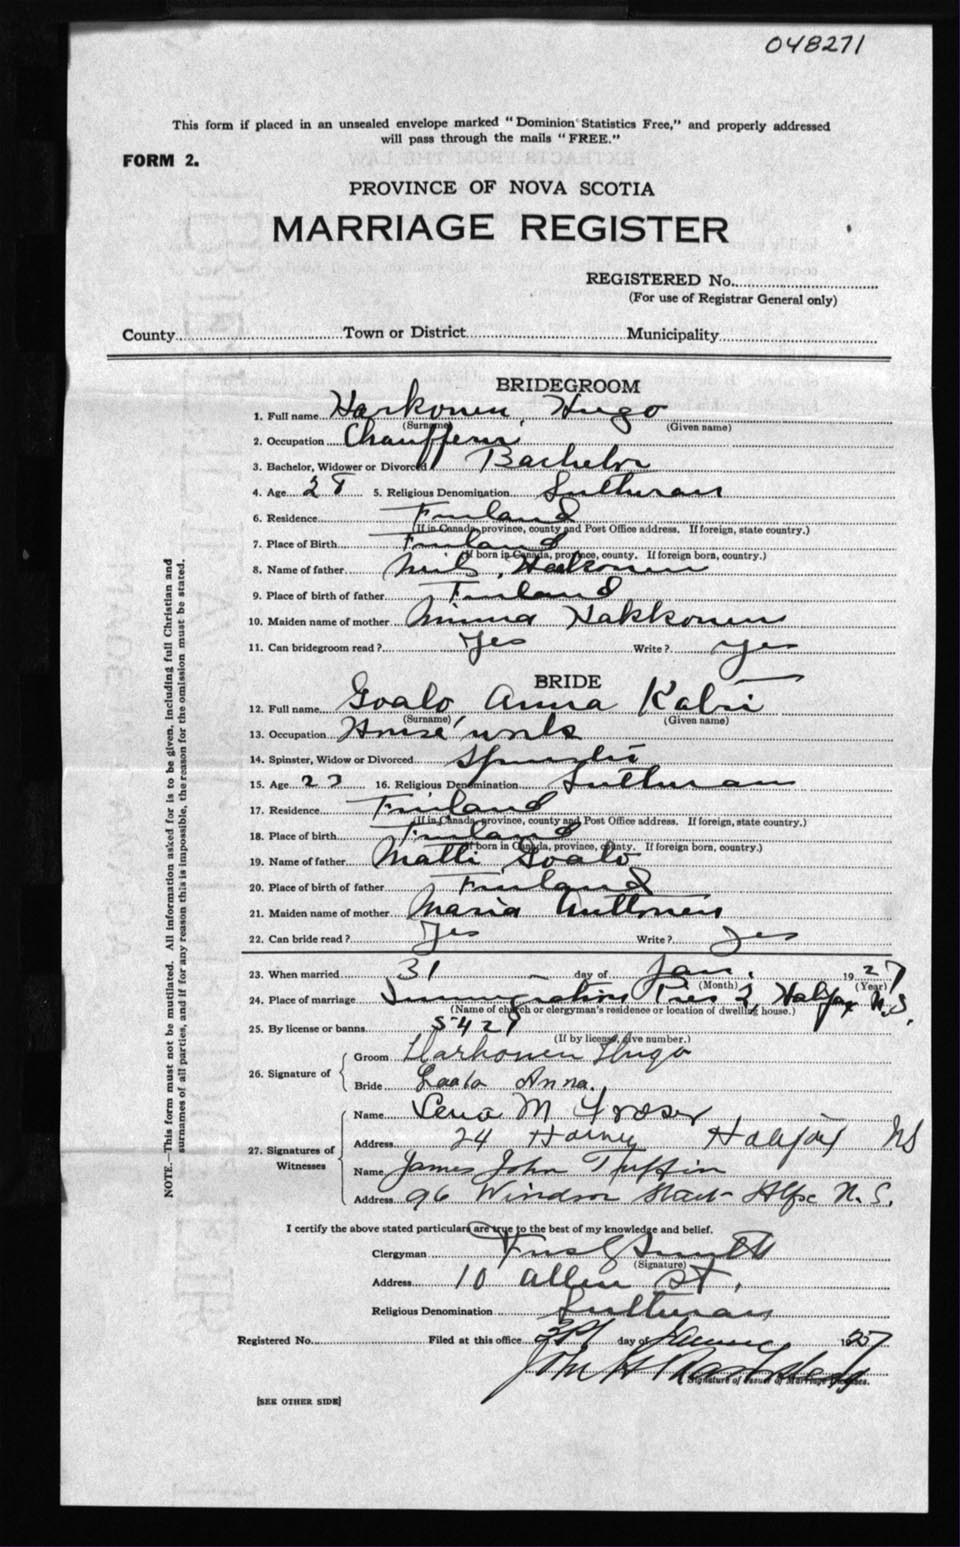 048271
This form if placed in an unsealed envelope marked "Dominion Statistics Free," and properly addressed
will pass through the mails "FREE."
FORM 2.
PROVINCE OF NOVA SCOTIA
MARRIAGE REGISTER
REGISTERED No.
(For use of Registrar General only)
County Town or District Municipality
BRIDEGROOM
1. Full name Harkonen, Hugo
(Surname) (Given name)
2. Occupation Chauffeur
3. Bachelor, Widower or Divorced Bachelor
4. Age 28 5. Religious Denomination Lutheran
6. Residence Finland
(If in Canada, province, county and Post Office address. If foreign, state country.)
7. Place of Birth Finland
(If born in Canada, province, county. If foreign born, country.)
8. Name of father Nils, Harkonen
9. Place of birth of father Finland
10. Maiden name of mother Minna Hakkonen
11. Can bridegroom read? Yes Write? yes
BRIDE
12. Full name Goalo Anna Kabri
(Surname) (Given name)
13. Occupation House work
14. Spinster, Widow or Divorced Spinster
15. Age 16. Religious Denomination Lutheran
17. Residence Finland
(If in Canada, province, county and Post Office address. If foreign, state country.)
18. Place of birth Finland
(If born in Canada, province, county. If foreign born, country.)
19. Name of father Matti Goalo
20. Place of birth of father Finland
21. Maiden name of mother Maria
22. Can bride read? Yes Write? Yes
23. When married 31 day of Jan. 1927
(Month) (Year)
24. Place of marriage Immigration Pier 2, Halifax N.S.
(Name of church or clergyman's residence or location of dwelling house.)
25. By license or banns
(If by license, give number.)
26. Signature of Groom Harkonen Hugo
Bride Anna.
27. Signatures of Witnesses
Name Lena M Fraser
Address 24 Harvey Halifax NS
Name James John Tuffin
Address 96 Windsor Street Hlfx N.S.
I certify the above stated particulars are true to the best of my knowledge and belief.
Clergyman
(Signature)
Address 10 Allen St.
Religious Denomination Lutheran
Registered No. Filed at this office day of 1927
John
Signature of Issuer of Marriage Licenses.
[SEE OTHER SIDE]
NOTE.—This form must not be mutilated. All information asked for is to be given, including full Christian and
surnames of all parties, and if for any reason this is impossible, the reason for the omission must be stated.